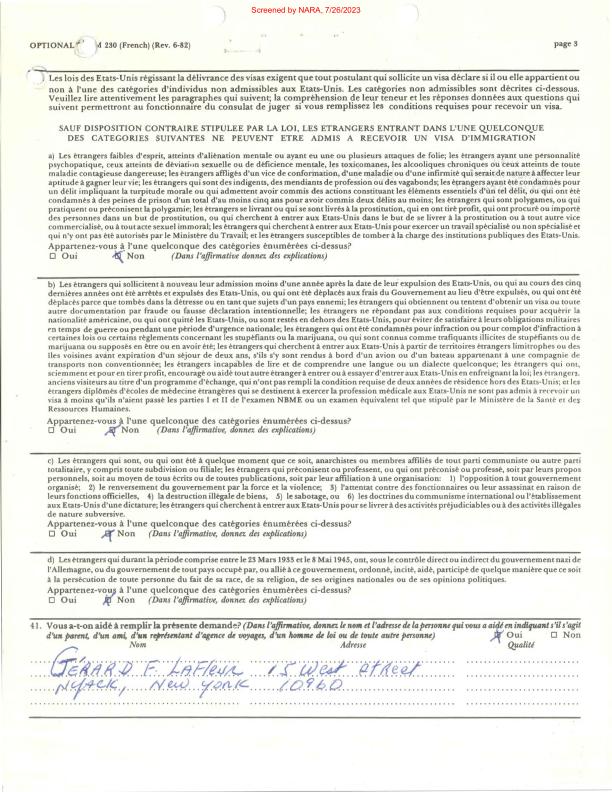 Screened by NARA, 7/26/2023
OPTIONAL M 230 (French) (Rev. 6-82) page 3
Les lois des Etats-Unis régissant la délivrance des visas exigent que tout postulant qui sollicite un visa déclare si il ou elle appartient ou
non à l'une des catégories d'individus non admissibles aux Etats-Unis. Les catégories non admissibles sont décrites ci-dessous.
Veuillez lire attentivement les paragraphes qui suivent; la compréhension de leur teneur et les réponses données aux questions qui
suivent permettront au fonctionnaire du consulat de juger si vous remplissez les conditions requises pour recevoir un visa.
SAUF DISPOSITION CONTRAIRE STIPULEE PAR LA LOI, LES ETRANGERS ENTRANT DANS L'UNE QUELCONQUE
DES CATEGORIES SUIVANTES NE PEUVENT ETRE ADMIS A RECEVOIR UN VISA D'IMMIGRATION
a) Les étrangers faibles d'esprit, atteints d'aliénation mentale ou ayant eu une ou plusieurs attaques de folie; les étrangers ayant une personnalité
psychopatique, ceux atteints de déviation sexuelle ou de déficience mentale, les toxicomanes, les alcooliques chroniques ou ceux atteints de toute
maladie contagieuse dangereuse; les étrangers affligés d'un vice de conformation, d'une maladie ou d'une infirmité qui serait de nature à affecter leur
aptitude à gagner leur vie; les étrangers qui sont des indigents, des mendiants de profession ou des vagabonds; les étrangers ayant été condamnés pour
un délit impliquant la turpitude morale ou qui admettent avoir commis des actions constituant les éléments essentiels d'un tel délit, ou qui ont été
condamnés à des peines de prison d'un total d'au moins cinq ans pour avoir commis deux délits au moins; les étrangers qui sont polygames, ou qui
pratiquent ou préconisent la polygamie; les étrangers se livrant ou se sont livrés à la prostitution, qui en ont tiré profit, qui ont procuré ou importé
des personnes dans un but de prostitution, ou qui cherchent à entrer aux Etats-Unis dans le but de se livrer à la prostitution ou à tout autre vice
commercialisé, ou à tout acte sexuel immoral; les étrangers qui cherchent à entrer aux Etats-Unis pour exercer un travail spécialisé ou non spécialisé et
qui n'y ont pas été autorisés par le Ministère du Travail; et les étrangers susceptibles de tomber à la charge des institutions publiques des Etats-Unis.
Appartenez-vous à l'une quelconque des catégories énumérées ci-dessus?
☐ Oui ☒ Non (Dans l'affirmative donnez des explications)
b) Les étrangers qui sollicitent à nouveau leur admission moins d'une année après la date de leur expulsion des Etats-Unis, ou qui au cours des cinq
dernières années ont été arrêtés et expulsés des Etats-Unis, ou qui ont été déplacés aux frais du Gouvernement au lieu d'être expulsés, ou qui ont été
déplacés parce que tombés dans la détresse ou en tant que sujets d'un pays ennemi; les étrangers obtiennent ou tentent d'obtenir un visa ou toute
autre documentation par fraude ou fausse déclaration intentionnelle; les étrangers ne répondant pas aux conditions requises pour acquérir la
nationalité américaine, ou qui ont quitté les Etats-Unis, ou sont restés en dehors des Etats-Unis, pour éviter de satisfaire à leurs obligations militaires
en temps de guerre ou pendant une période d'urgence nationale; les étrangers qui ont été condamnés pour infraction ou pour complot d'infraction à
certaines lois ou certains règlements concernant les stupéfiants ou la marijuana, ou qui sont connus comme trafiquants illicites de stupéfiants ou de
marijuana ou supposés en être ou en avoir été; les étrangers qui cherchent à entrer aux Etats-Unis à partir de territoires étrangers limitrophes ou des
îles voisines avant expiration d'un séjour de deux ans, s'ils s'y sont rendus à bord d'un avion ou d'un bateau appartenant à une compagnie de
transports non conventionnée; les étrangers incapables de lire et de comprendre une langue ou un dialecte quelconque; les étrangers qui ont,
sciemment et pour en tirer profit, encouragé ou aidé tout autre étranger à entrer ou à essayer d'entrer aux Etats-Unis en enfreignant la loi; les étrangers,
anciens visiteurs au titre d'un programme d'échange, qui n'ont pas rempli la condition requise de deux années de résidence hors des Etats-Unis; et les
étrangers diplômés d'écoles de médecine étrangères qui se destinent à exercer la profession médicale aux Etats-Unis ne sont pas admis à recevoir un
visa à moins qu'ils n'aient passé les parties I et II de l'examen NBME ou un examen équivalent tel que stipulé par le Ministère de la Santé et des
Ressources Humaines.
Appartenez-vous à l'une quelconque des catégories énumérées ci-dessus?
☐ Oui ☒ Non (Dans l'affirmative, donnez des explications)
c) Les étrangers qui sont, ou qui ont été à quelque moment que ce soit, anarchistes ou membres affiliés de tout parti communiste ou autre parti
totalitaire, y compris toute subdivision ou filiale; les étrangers qui préconisent ou professent, ou qui ont préconisé ou professé, soit par leurs propres
personnels, soit au moyen de tous écrits ou de toutes publications, soit par leur affiliation à une organisation: 1) l'opposition à tout gouvernement
organisé; 2) le renversement du gouvernement par la force et la violence; 3) l'attentat contre des fonctionnaires ou leur assassinat en raison de
leurs fonctions officielles, 4) la destruction illégale de biens, 5) le sabotage, ou 6) les doctrines du communisme international ou l'établissement
aux Etats-Unis d'une dictature; les étrangers qui cherchent à entrer aux Etats-Unis pour se livrer à des activités préjudiciables ou à des activités illégales
de nature subversive.
Appartenez-vous à l'une quelconque des catégories énumérées ci-dessus?
☐ Oui ☒ Non (Dans l'affirmative, donnez des explications)
d) Les étrangers qui durant la période comprise entre le 23 Mars 1933 et le 8 Mai 1945, ont, sous le contrôle direct ou indirect du gouvernement nazi de
l'Allemagne, ou du gouvernement de tout pays occupé par, ou allié à ce gouvernement, ordonné, incité, aidé, participé de quelque manière que ce soit
à la persécution de toute personne du fait de sa race, de sa religion, de ses origines nationales ou de ses opinions politiques.
Appartenez-vous à l'une quelconque des catégories énumérées ci-dessus?
☐ Oui ☒ Non (Dans l'affirmative, donnez des explications)
41. Vous a-t-on aidé à remplir la présente demande? (Dans l'affirmative, donnez le nom et l'adresse de la personne qui vous a aidé en indiquant s'il s'agit
d'un parent, d'un ami, d'un représentant d'agence de voyages, d'un homme de loi ou de toute autre personne) ☒ Oui ☐ Non
Nom Adresse Qualité
GÉRARD F. LAFLEUR 15 West Street
NYACK, NEW YORK 10960